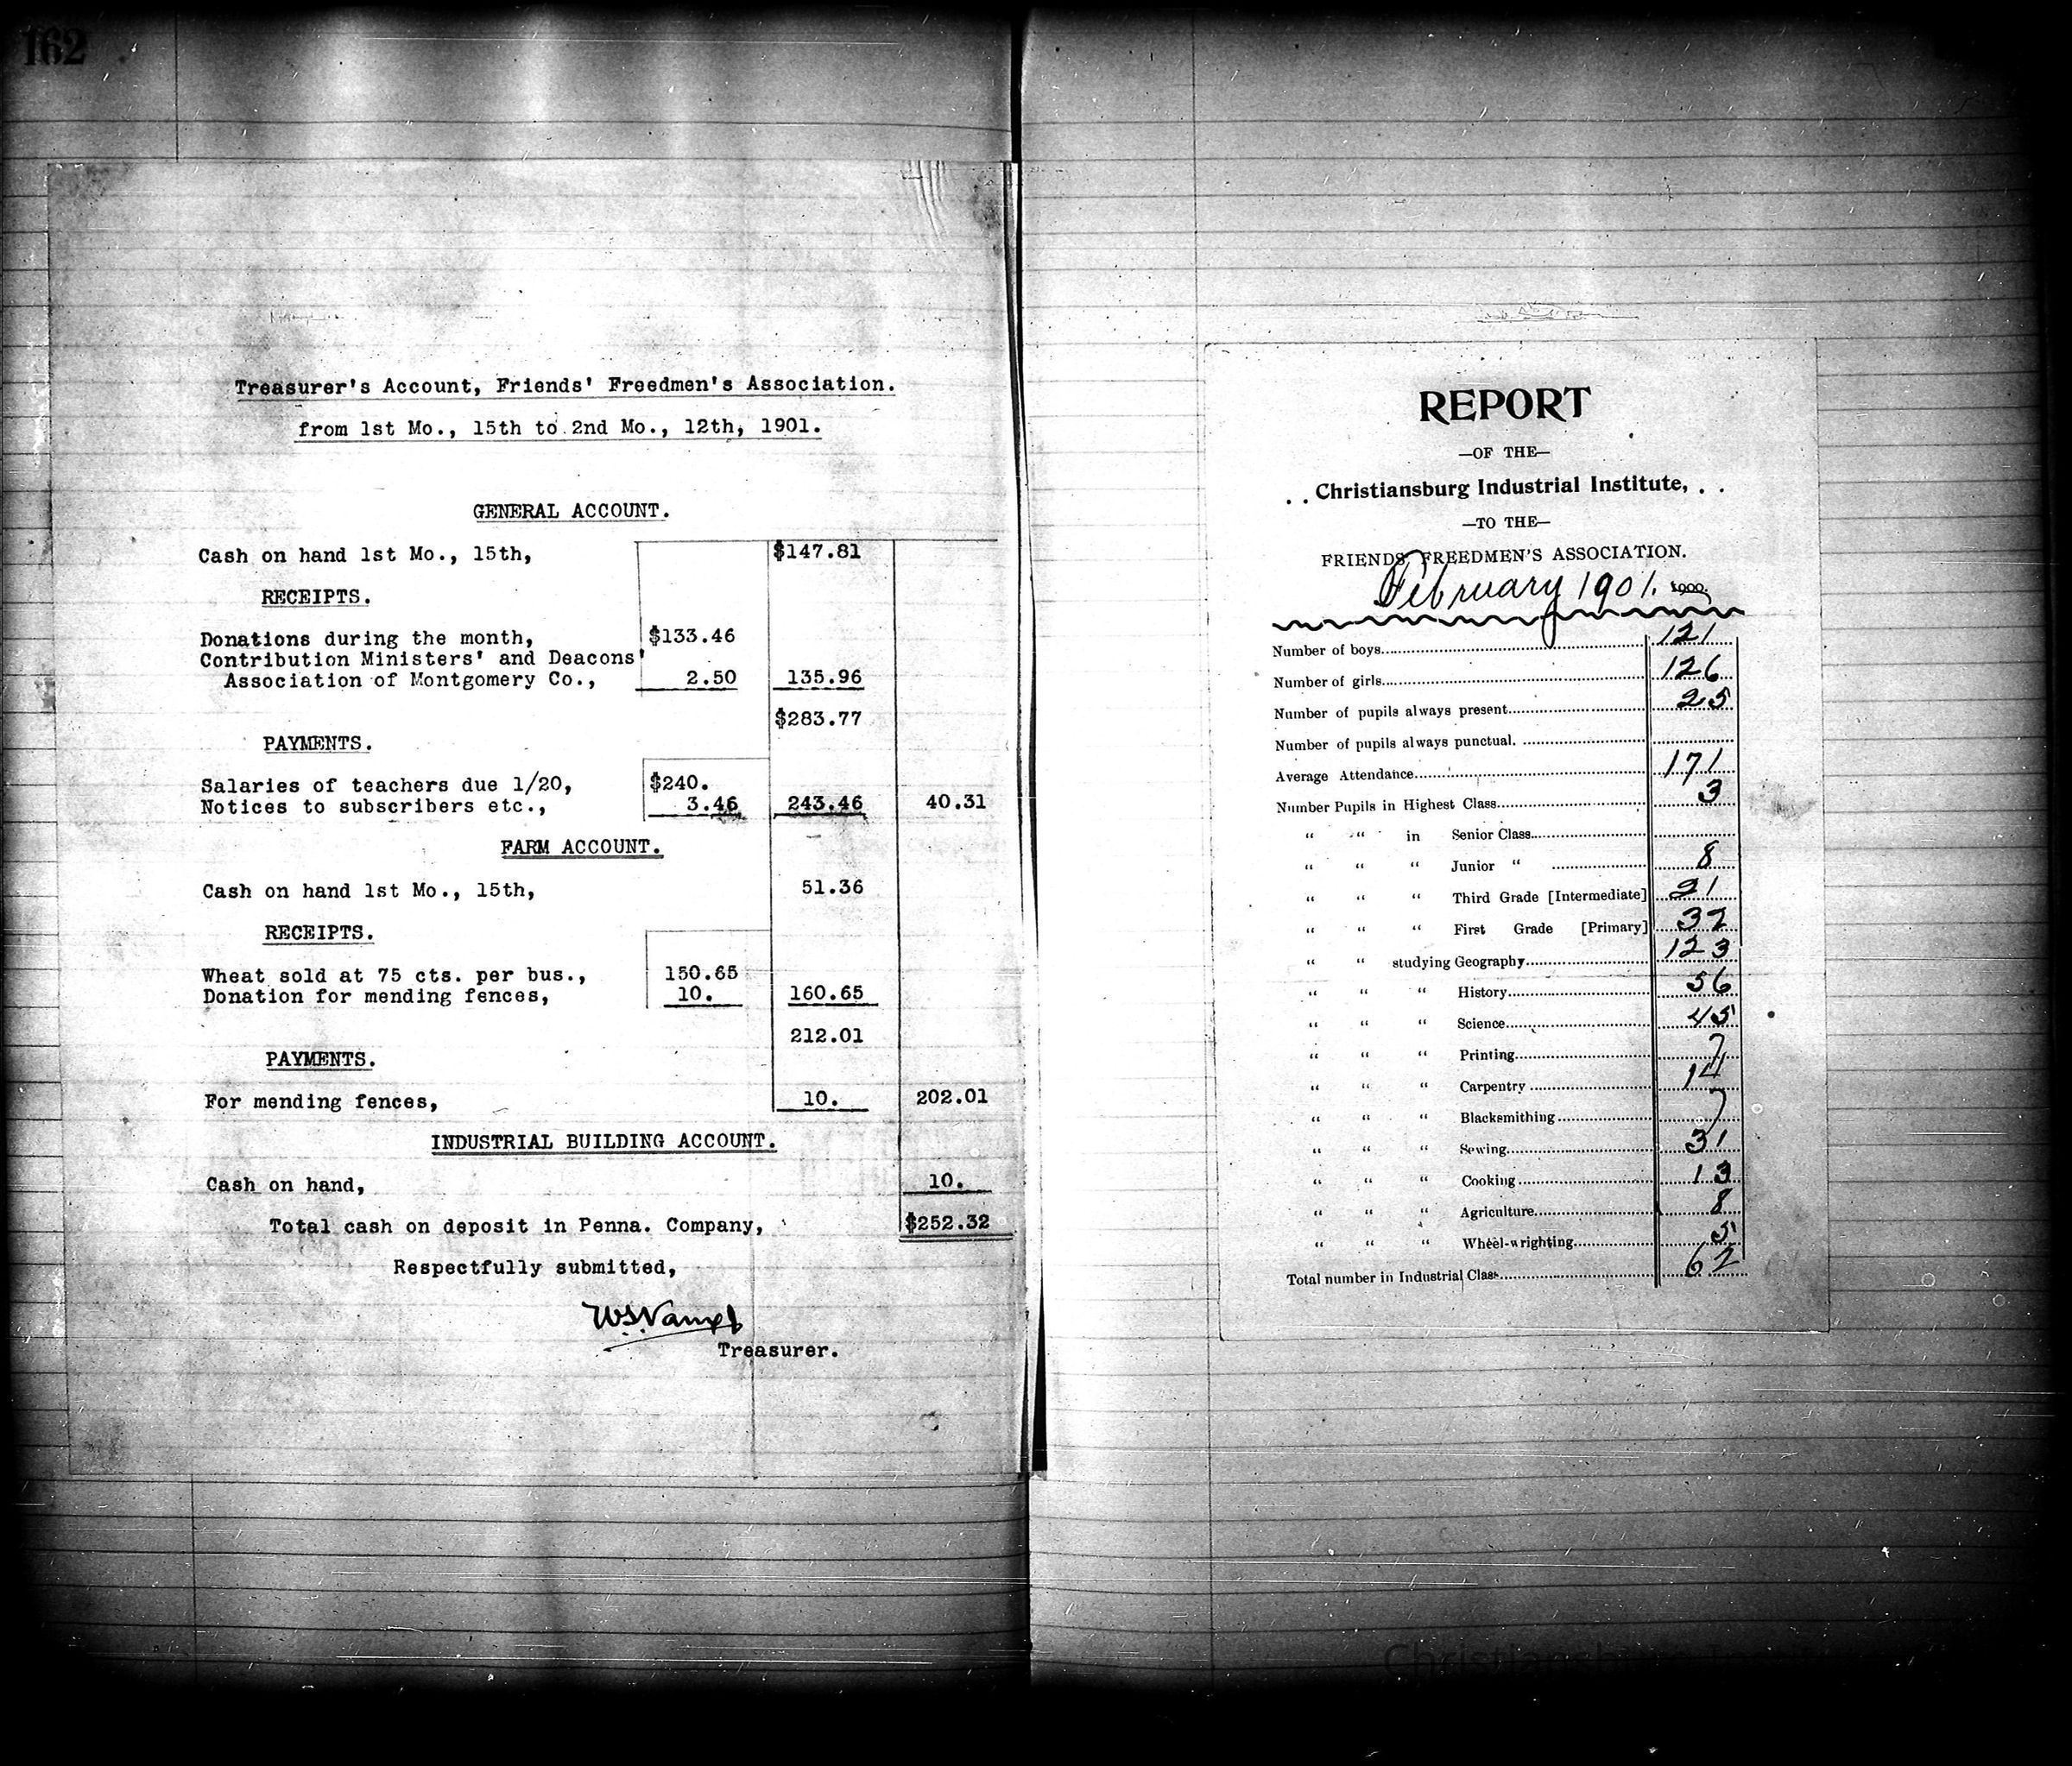 162
Treasurer's Account, Friends' Freedmen's Association.
from 1st Mo., 15th to 2nd Mo., 12th, 1901.
GENERAL ACCOUNT.
Cash on hand 1st Mo., 15th, $147.81
RECEIPTS.
Donations during the month, $133.46
Contribution Ministers' and Deacons'
Association of Montgomery Co., 2.50 135.96
$283.77
PAYMENTS.
Salaries of teachers due 1/20, $240.
Notices to subscribers etc., 3.46 243.46 40.31
FARM ACCOUNT.
Cash on hand 1st Mo., 15th, 51.36
RECEIPTS.
Wheat sold at 75 cts. per bus., 150.65
Donation for mending fences, 10. 160.65
212.01
PAYMENTS.
For mending fences, 10. 202.01
INDUSTRIAL BUILDING ACCOUNT.
Cash on hand, 10.
Total cash on deposit in Penna. Company, $252.32
Respectfully submitted,
Treasurer.
REPORT
—OF THE—
. . Christiansburg Industrial Institute, . .
—TO THE—
FRIENDS' FREEDMEN'S ASSOCIATION.
February 1901. 1900.
Number of boys 121
Number of girls 126
Number of pupils always present 25
Number of pupils always punctual.
Average Attendance 171
Number Pupils in Highest Class 3
" " in Senior Class
" " " Junior " 8
" " " Third Grade [Intermediate] 21
" " " First Grade [Primary] 32
" " studying Geography 123
" " " History 56
" " " Science 45
" " " Printing 7
" " " Carpentry 14
" " " Blacksmithing 7
" " " Sewing 31
" " " Cooking 13
" " " Agriculture 8
" " " Wheel-wrighting 5
Total number in Industrial Class 62